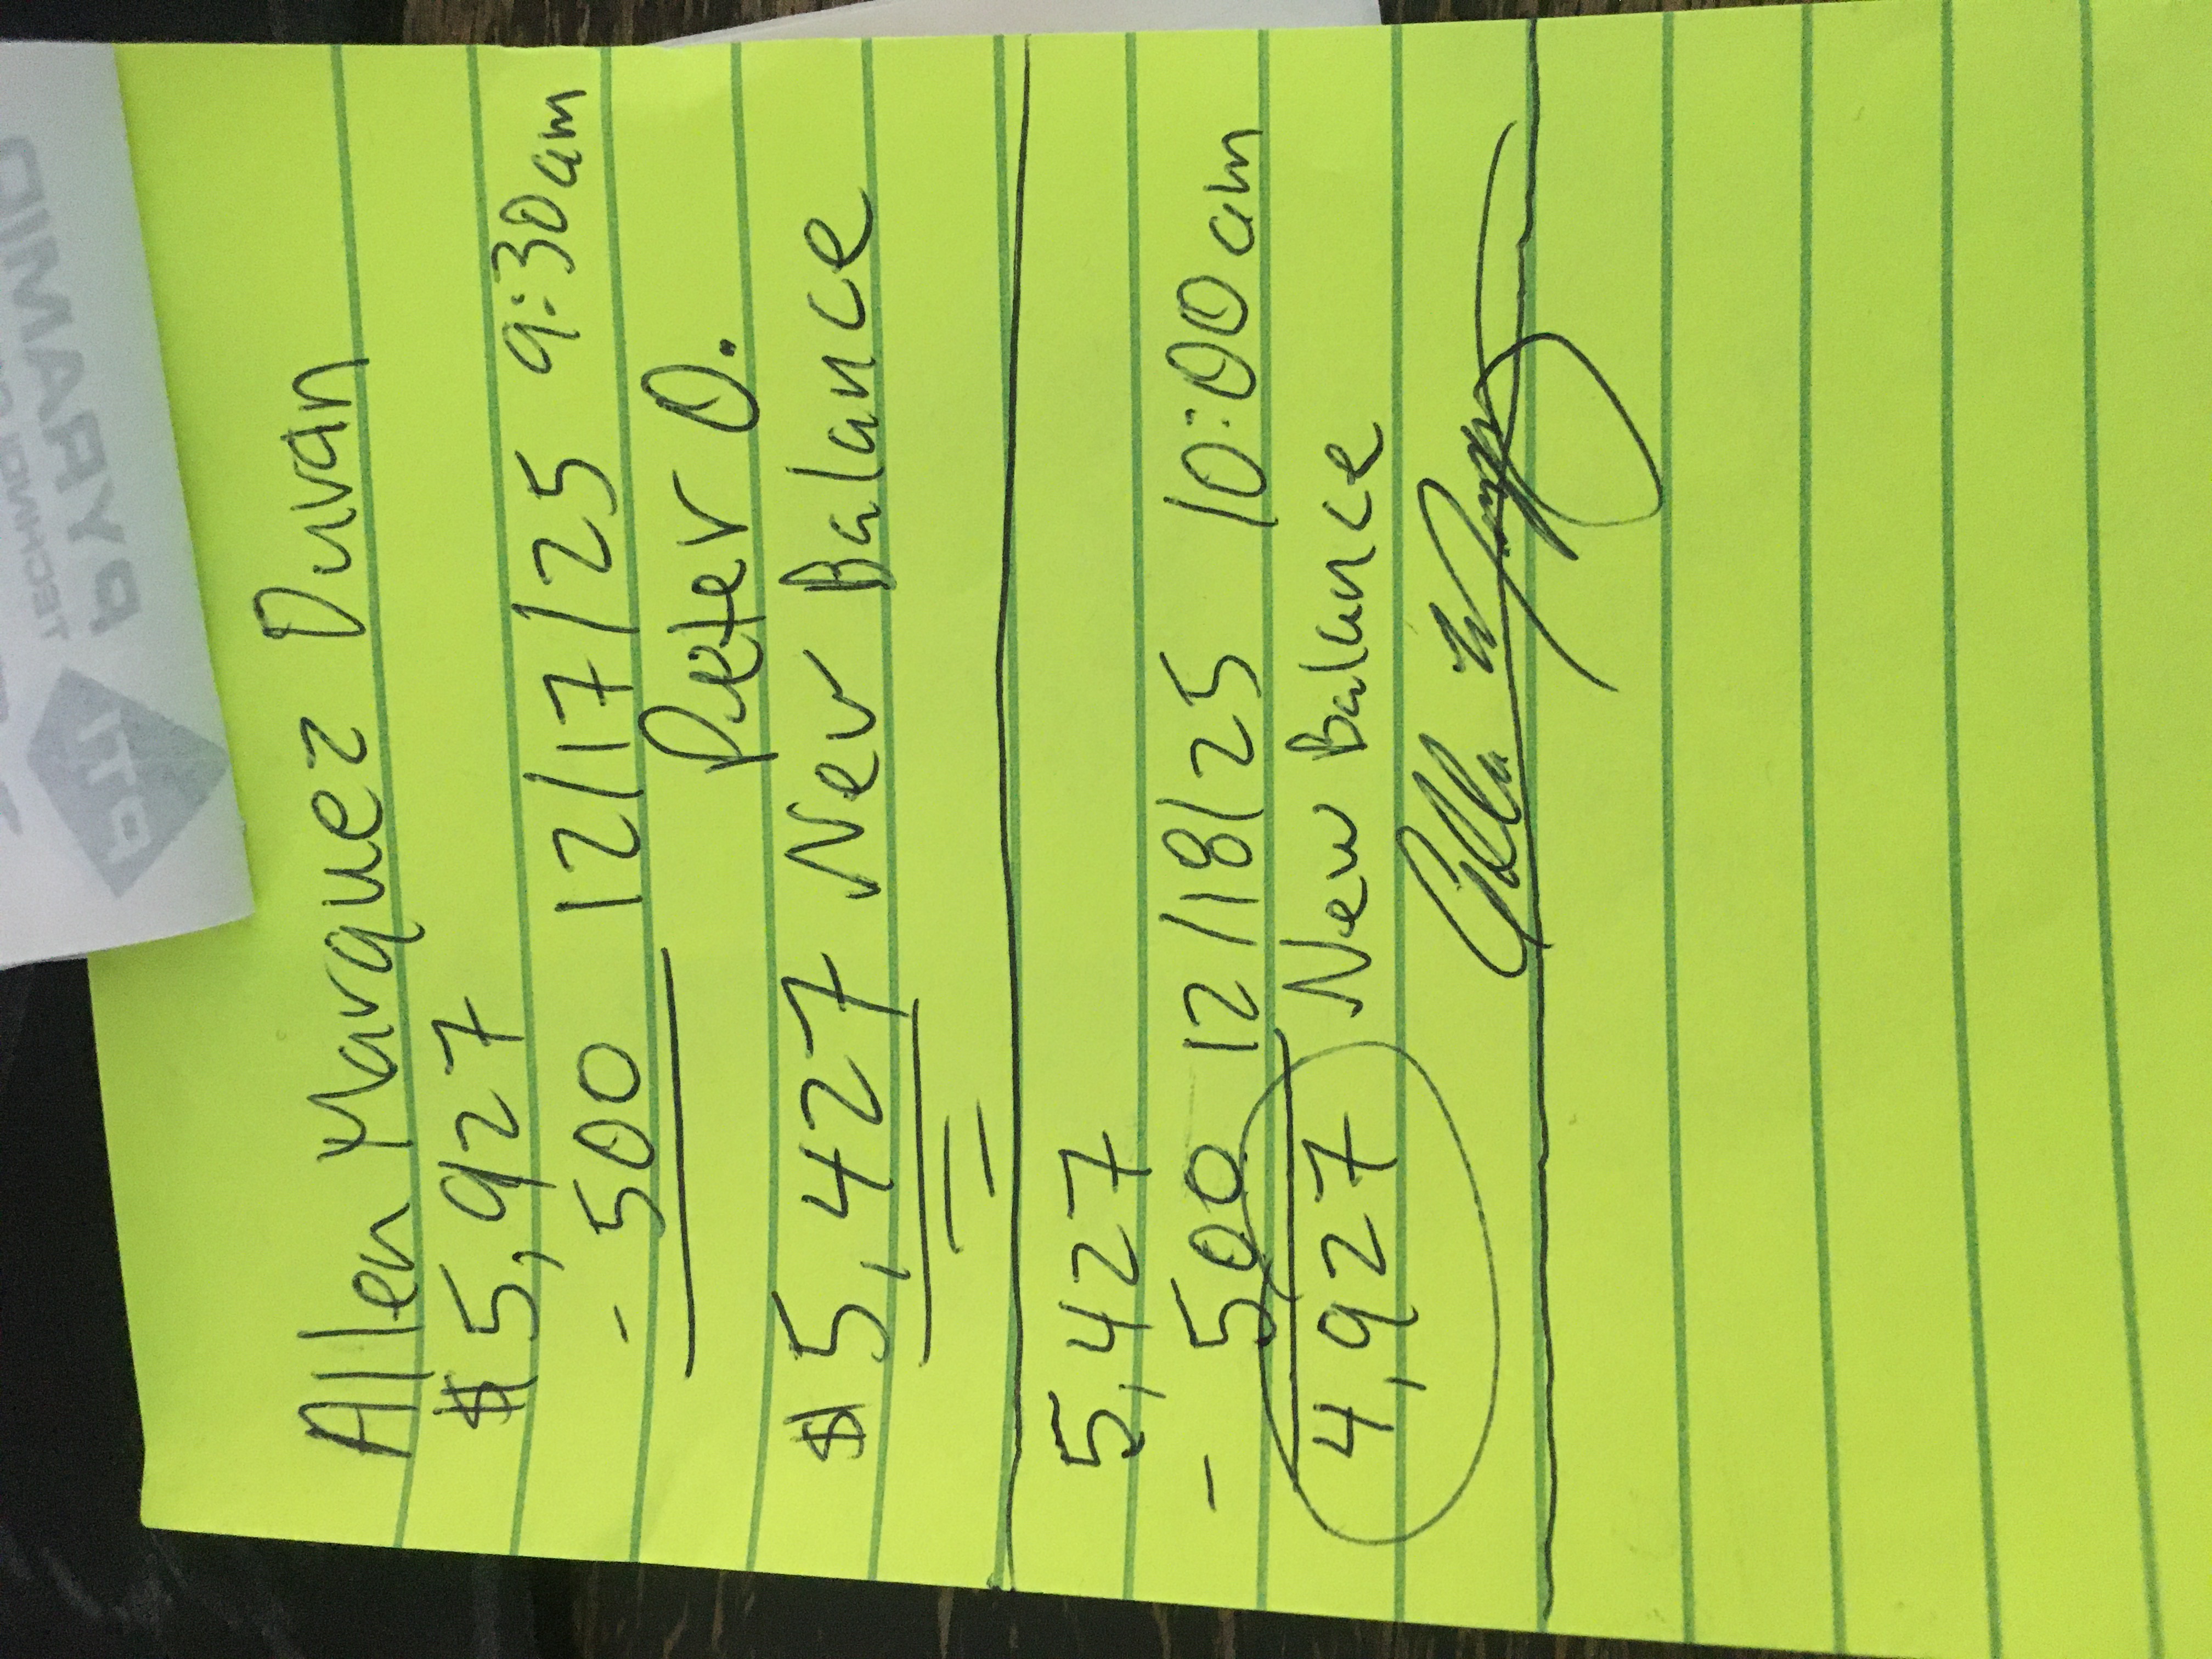 Allen Marquez Duvan
$5,927
- 500 12/17/25 9:30am
Peter O.
$5,427 New Balance
5,427
- 500 12/18/25 10:00 am
4,927 New Balance
PYRAMID
PTI